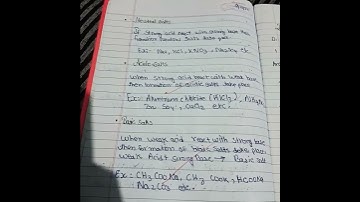 Neutral salts
If strong acid react with strong base then
formation Neutral salts take place
Ex:- NaCl, KCl, KNO3,
Acidic salts
when strong acid react with weak base
then formation of acidic salts take place
Ex: Aluminium chlorine (AlCl3),
etc.
Basic Salts
when weak acid react with strong base
then formation of basic salts takes place
weak Acid + strong Base → Basic salt
Ex = CH3COONa, CH3COOK, HCOONa
Na2CO3 etc.